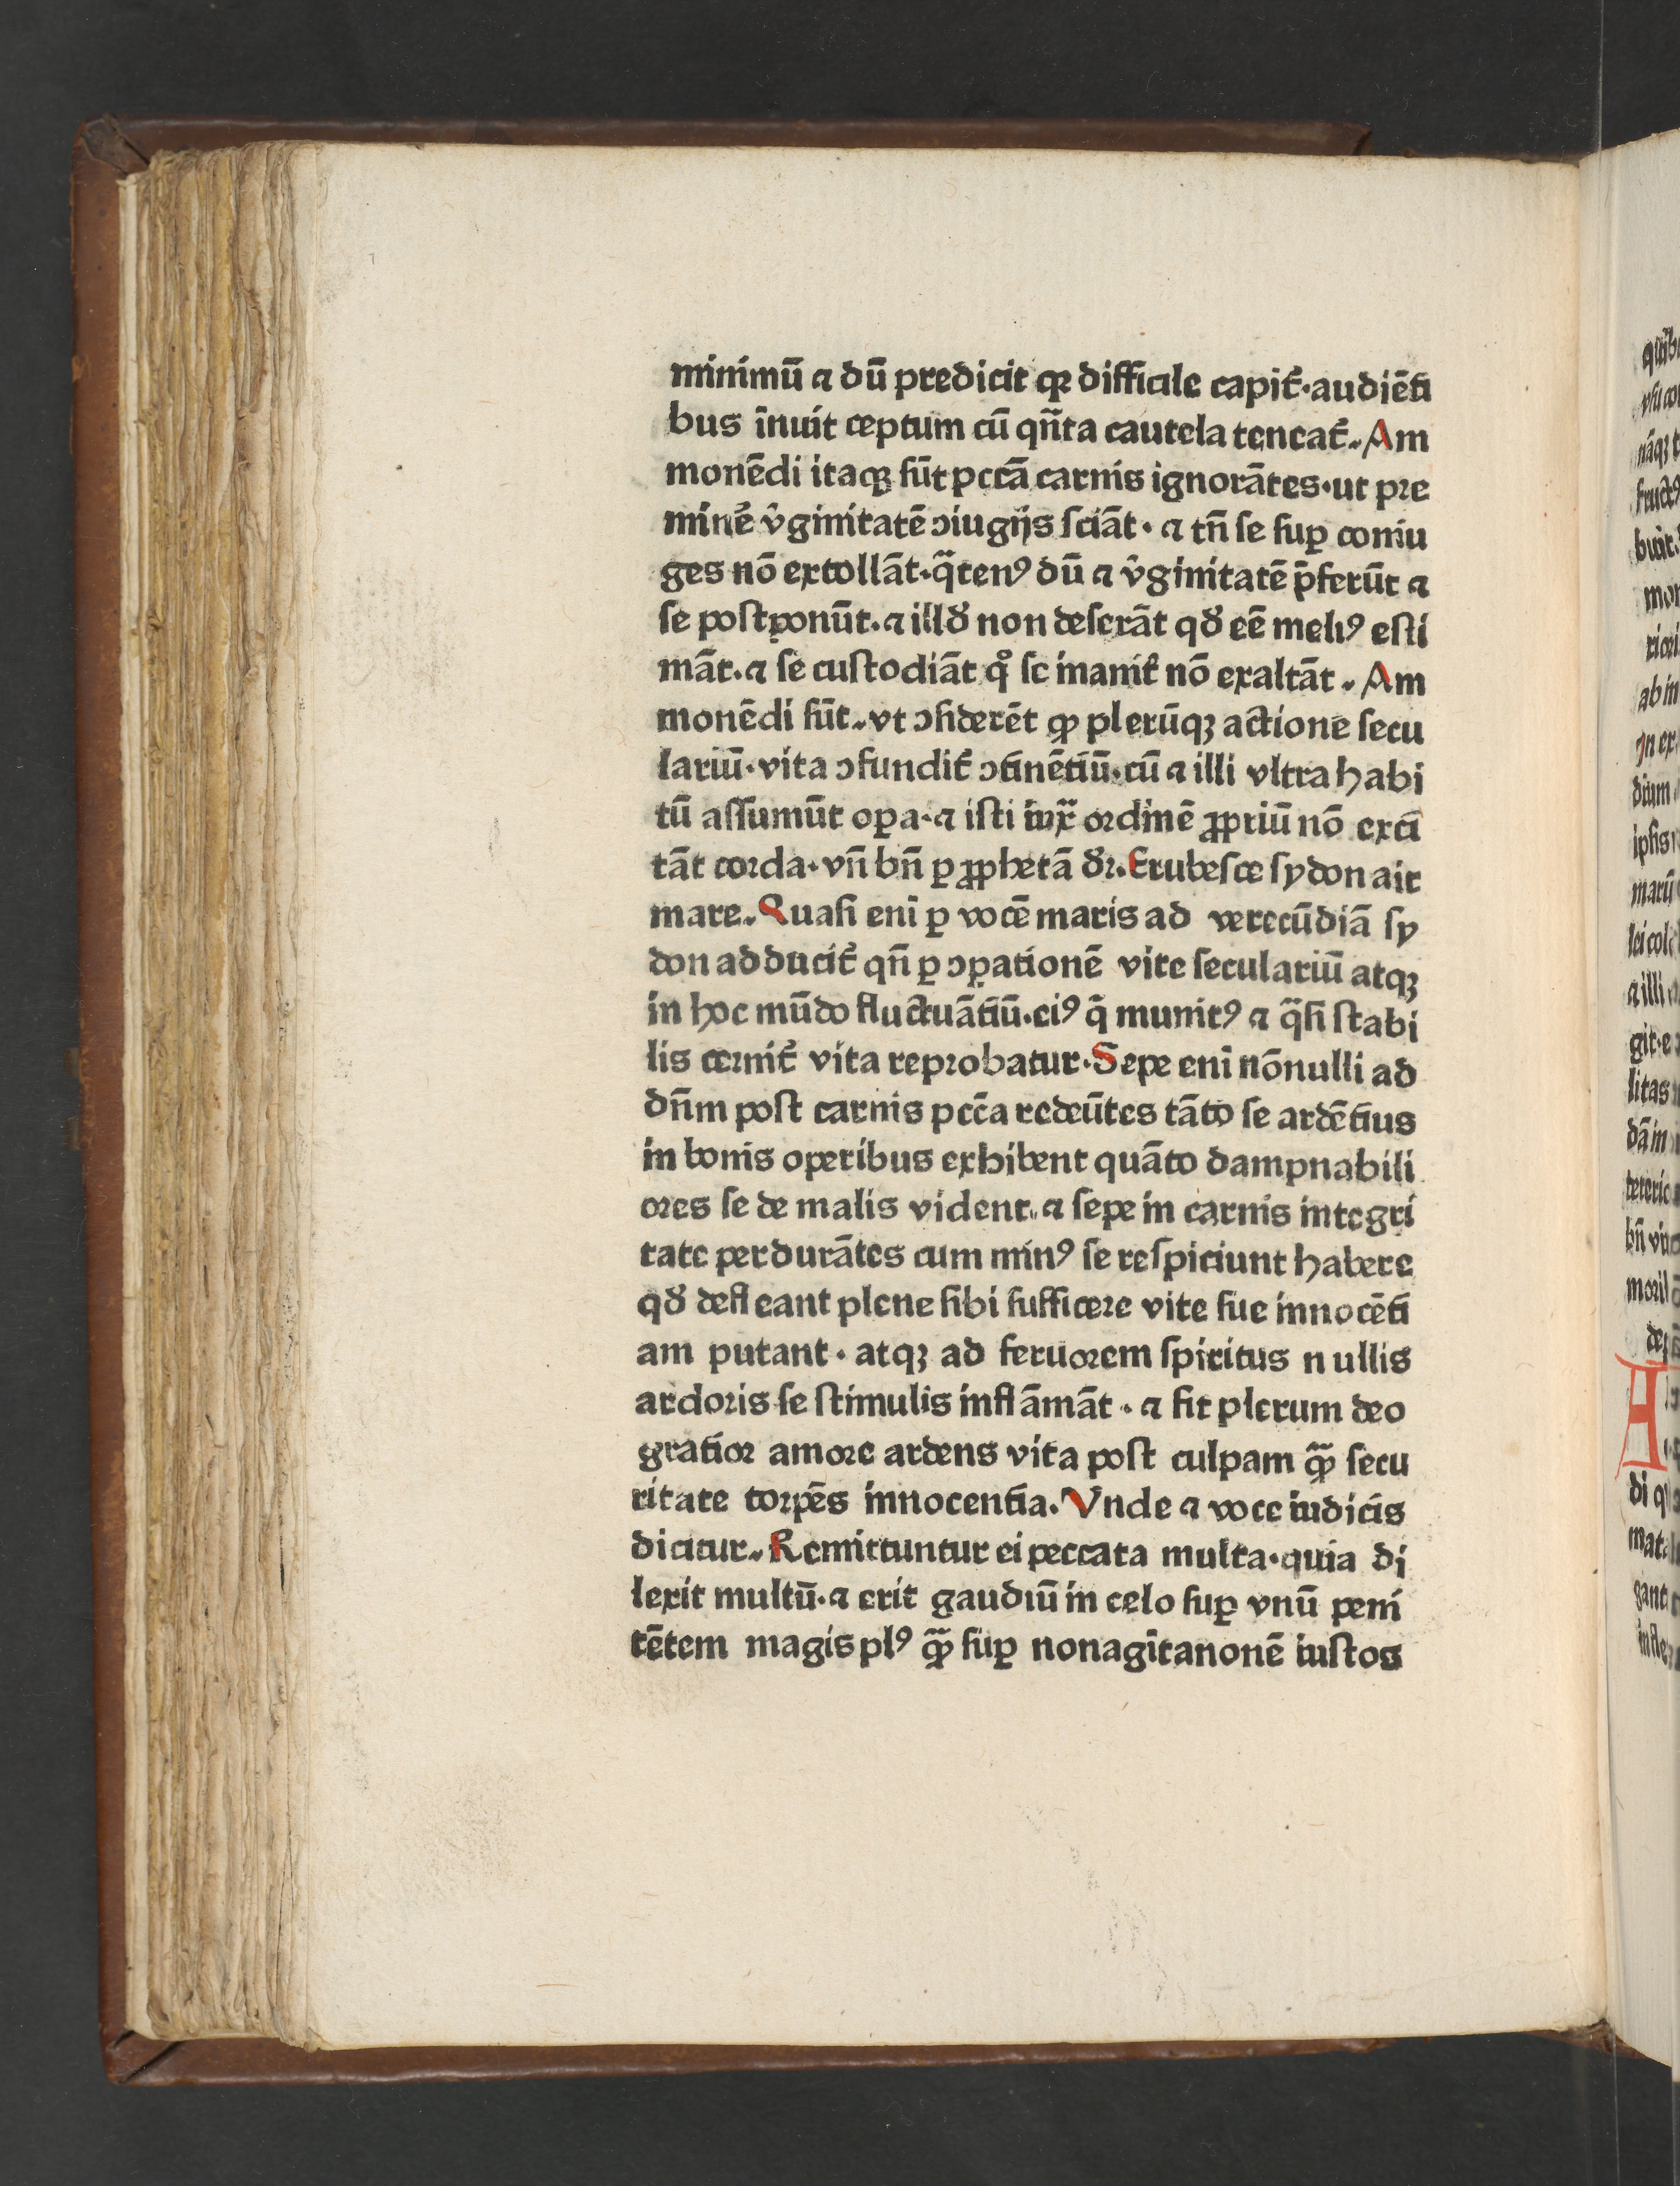 minimū ⁊ dū predicit ꝙ difficile capit̉·audiēti
bus īnuit ceptum cū qn̄ta cautela teneat̉. Am
monēdi itaqꝫ ſūt pctā carnis ignorātes·ut pre
minē v̓ginitatē ꝯiugijs ſciāt · ⁊ tn̄ ſe ſuꝑ coniu
ges nō extollāt·q̈tenꝰ dū ⁊ v̓ginitatē p̄ferūt ⁊
ſe poſtponūt.⁊ illd̕ non deſerāt qd̕ eē meliꝰ eſti
māt.⁊ ſe cuſtodiāt qͦ ſe inanit̉ nō exaltāt. Am
monēdi ſūt. vt ꝯſiderēt ꝙ plerūqꝫ actione ſecu
lariū·vita ꝯfundit̉ ꝯtinētiū·cū ⁊ illi vltra habi
tū aſſumūt oꝑa·⁊ iſti iux̄ ordinē ꝓpriū nō exci
tāt corda·vn̄ bn̄ ꝑ ꝓphetā dr̄. Erubeſce ſydon ait
mare. Quaſi enī ꝑ vocē maris ad verecūdiā ſy
don adducit̉ qn̄ ꝑ ꝯꝑationē vite ſeculariū atqꝫ
in hoc mūdo fluctuātiū·eiꝰ q̄ munitꝰ ⁊ q̈ſi ſtabi
lis cernit̉ vita reprobatur·Sepe enī nōnulli ad
dn̄m poſt carnis pctā redeūtes tāto ſe ardētius
in bonis operibus exhibent quāto dampnabili
ores ſe de malis vident. ⁊ ſepe in carnis integri
tate perdurātes cum minꝰ ſe reſpiciunt habere
qd̕ defleant plene ſibi ſufficere vite ſue innocēti
am putant · atqꝫ ad feruorem ſpiritus nullis
ardoris ſe ſtimulis inflāmāt · ⁊ fit plerum deo
gratior amore ardens vita poſt culpam ꝙ̄ ſecu
ritate torpēs innocentia. Vnde ⁊ voce iudicis
dicitur. Remittuntur ei peccata multa·quia di
lexit multū·⁊ erit gaudiū in celo ſuꝑ vnū peni
tētem magis plꝰ ꝙ̄ ſuꝑ nonagītanonē iuſtos